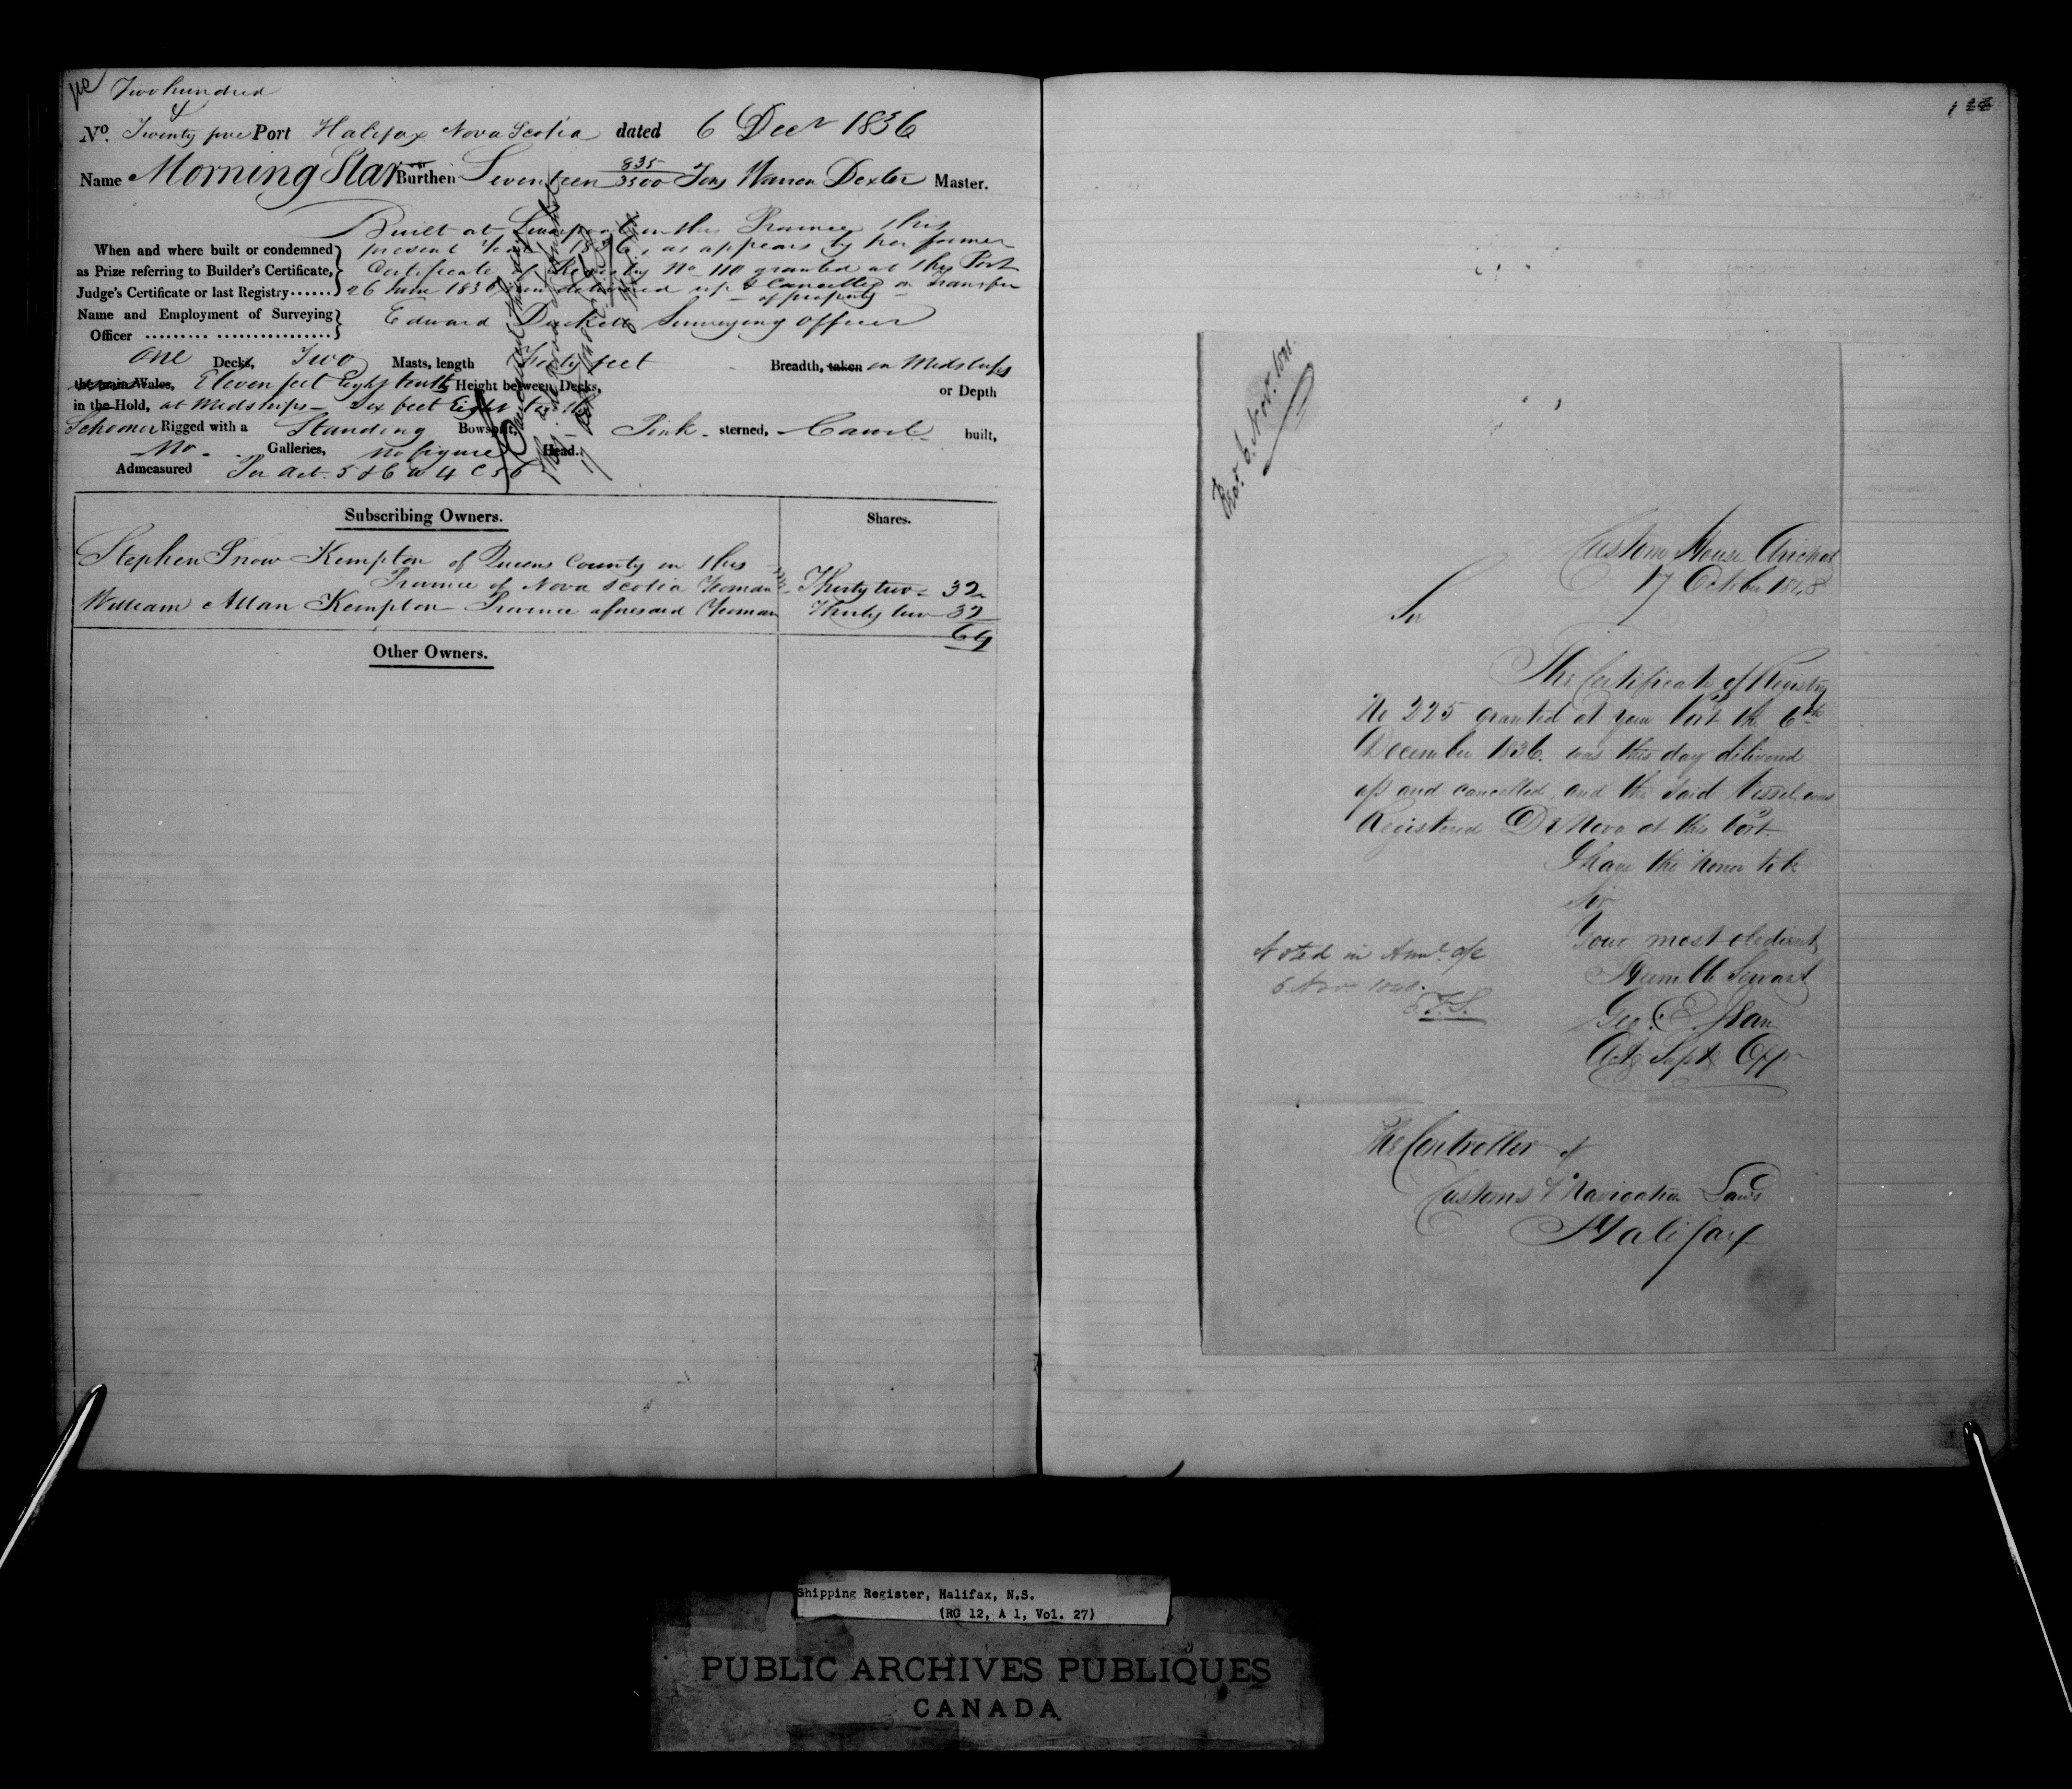 Two hundred
&
No. Twenty five Port Halifax Nova Scotia dated 6 Decr 1836
Name Morning Star Burthen Seventeen 835/3500 Tons Warren Dexter Master.
Built at Liverpool in this Province this
When and where built or condemned present Year 1836, as appears by her former
as Prize referring to Builder's Certificate, Certificate of Registry No 110 granted at this Port
Judge's Certificate or last Registry...... 26 June 1836 now delivered up & Cancelled on Transfer
of property
Name and Employment of Surveying
Officer Edward Duckett Surveying Officer
One Decks, Two Masts, length Thirty feet Breadth, taken in Midships
the main Wales, Eleven feet Eight tenths Height between Decks, or Depth
in the Hold, at Midships - Six feet Eight tenths
Schooner Rigged with a Standing Bowsprit, Pink sterned, Carvel built,
No Galleries, no figure Head.
Admeasured Per Act 5 & 6 W 4 C 56
Subscribing Owners. Shares.
Stephen Snow Kempton of Queens County in this
Province of Nova Scotia Yeoman Thirty two 32
William Allan Kempton Province aforesaid Yeoman Thirty two 32
64
Other Owners.
6. Novr. 1848.
Custom House Arichat
17 October 1848
Sir
The Certificate of Registry
No 225 granted at your Port the 6th
December 1836. was this day delivered
up and cancelled, and the said Vessel was
Registered De Novo at this Port.
I have the honor to be
Sir
Your most obedient
Humble Servant
Geo. E.
Noted in Annl. a/c
6 Nov. 1848.
The Controller of
Customs & Navigation Laws
Halifax
Shipping Register, Halifax, N.S.
(RG 12, A 1, Vol. 27)
PUBLIC ARCHIVES PUBLIQUES
CANADA